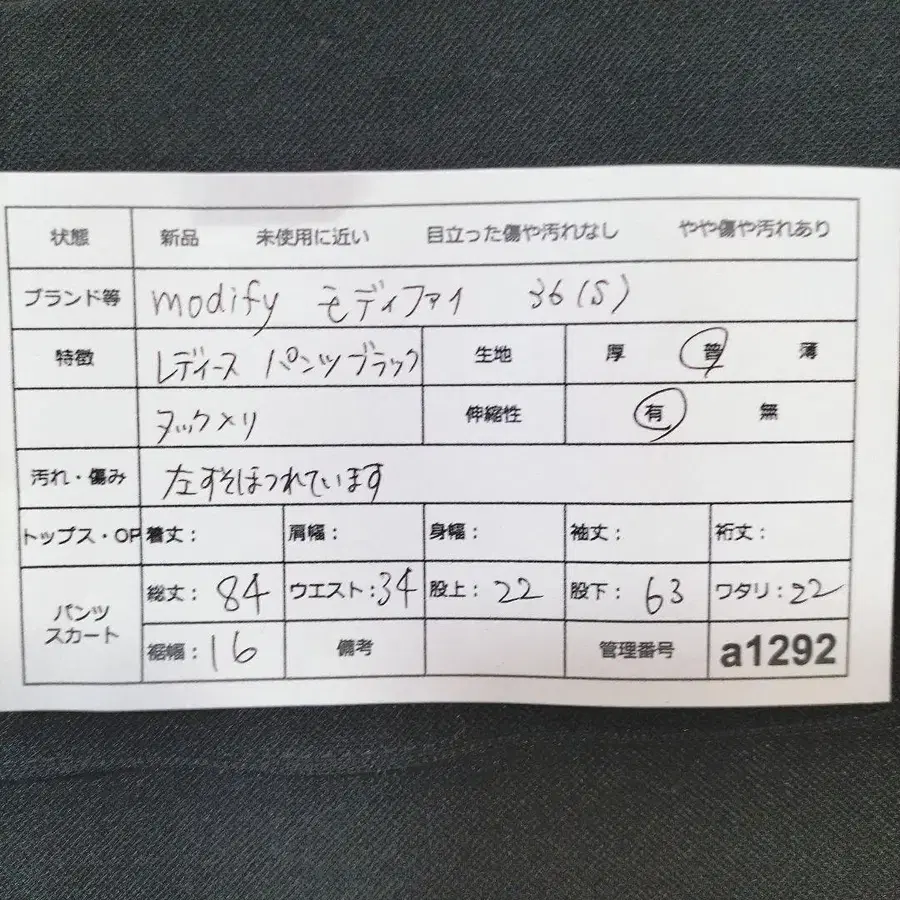 状態 新品 未使用に近い 目立った傷や汚れなし やや傷や汚れあり
ブランド等 modify モディファイ 36(S)
特徴 レディース パンツブラック 生地 厚 普 薄
ヌックメリ 伸縮性 有 無
汚れ・傷み 左すそほつれています
トップス・OP 着丈: 肩幅: 身幅: 袖丈: 裄丈:
パンツ スカート 総丈: 84 ウエスト:34 股上: 22 股下: 63 ワタリ:22
裾幅:16 備考 管理番号 a1292